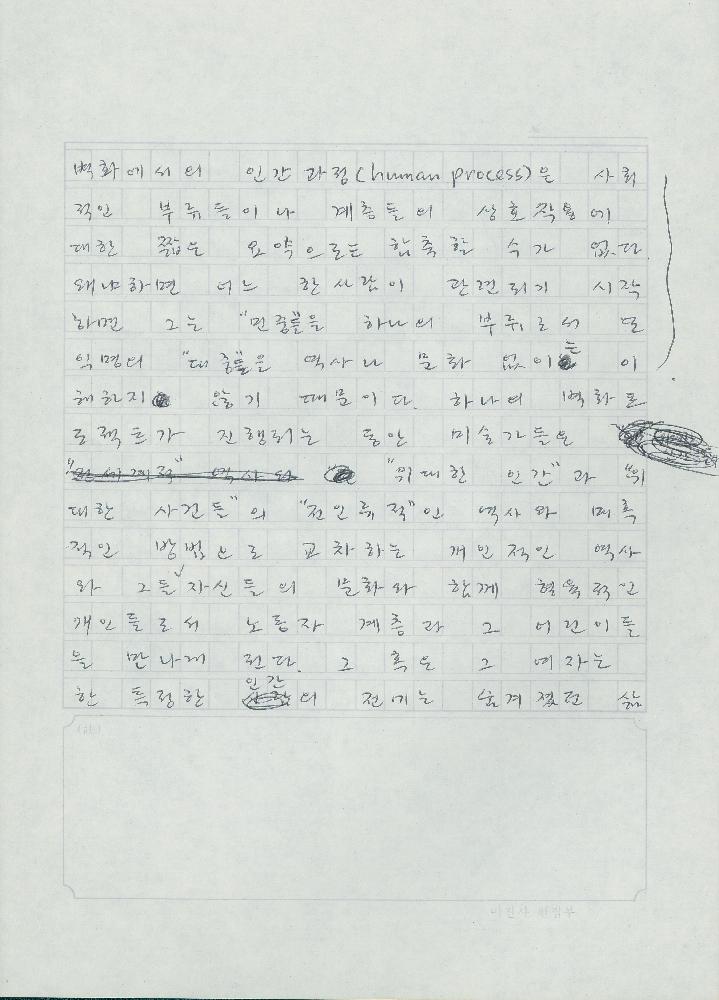 벽화에서의 인간 과정(human process)은 사회
적인 부류들이나 계층들의 상호작용에
대한 짧은 요약으로는 함축할 수가 없다.
왜냐하면 어느 한 사람이 관련되기 시작
하면 그는 "민중들"을 하나의 부류로서 또
익명의 "대중들"을 역사나 문화 없이는 이
해하지 않기 때문이다. 하나의 벽화프
로젝트가 진행되는 동안 미술가들은
"위대한 인간"과 "위
대한 사건들"의 "전인류적"인 역사와 매혹
적인 방법으로 교차하는 개인적인 역사
와 그들 자신들의 문화와 함께 혈육적인
개인들로서 노동자 계층과 그 어린이들
을 만나게 된다. 그 혹은 그 여자는
한 특정한 인간의 전에는 숨겨졌던 삶
(주)
미진사 편집부